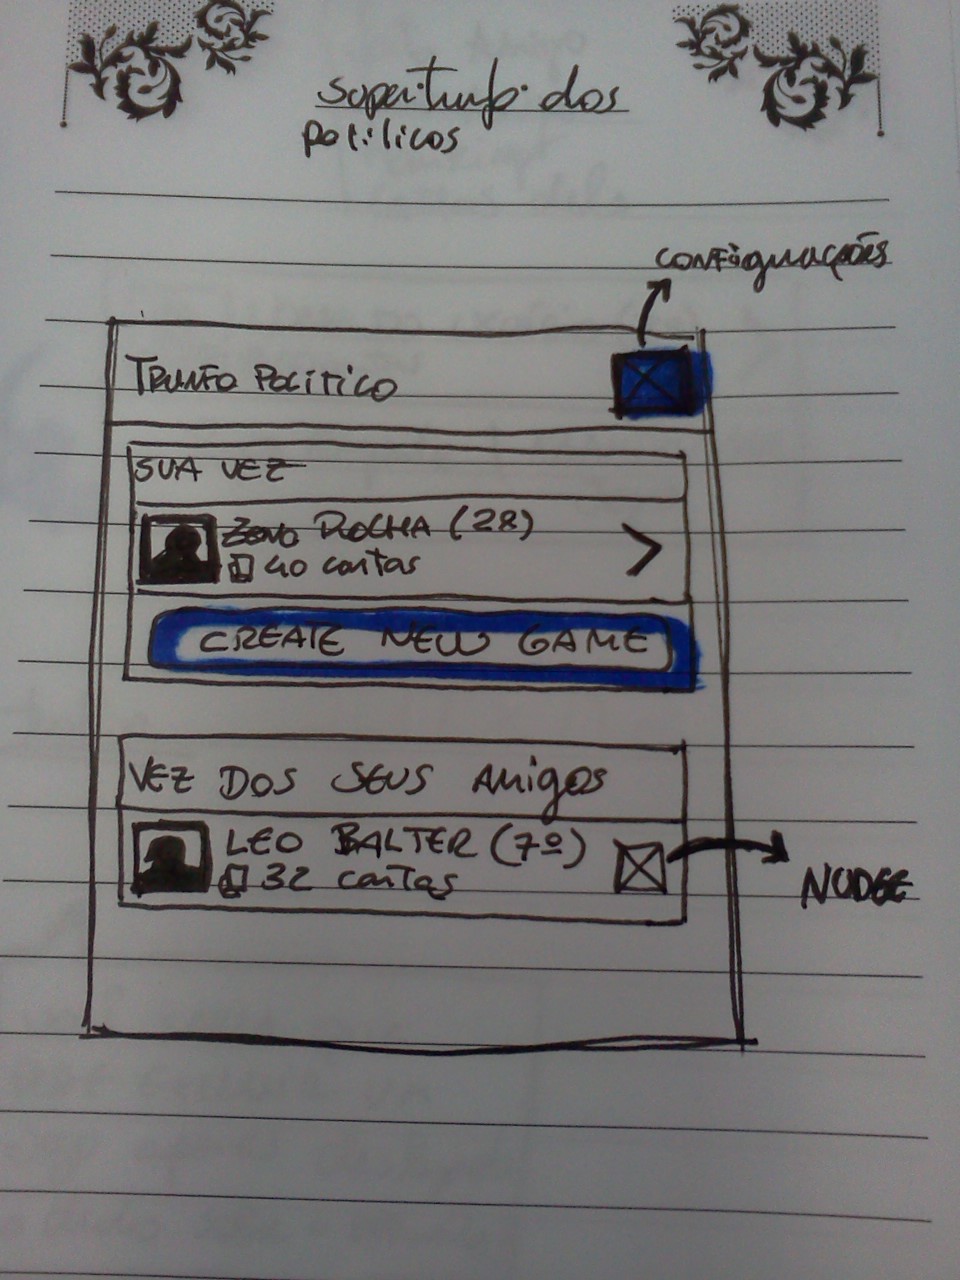 super trunfo dos
políticos
configurações
TRUNFO POLÍTICO
SUA VEZ
ZENO ROCHA (28)
40 cartas
CREATE NEW GAME
VEZ DOS SEUS AMigos
LEO BALTER (7º)
32 cartas
NUDGE